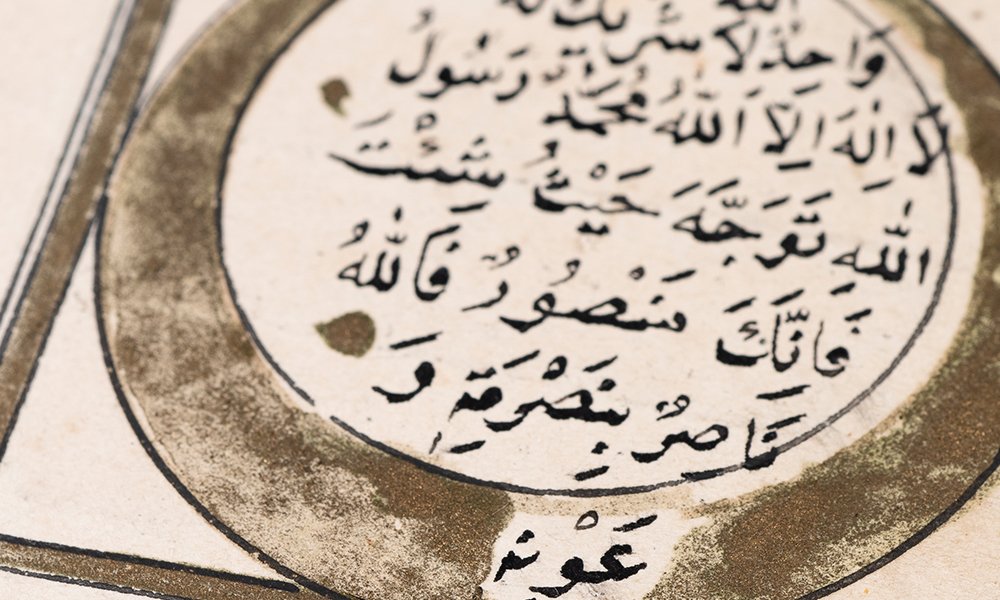 الله
وَاحِدٌ لَا شَرِيكَ لَهُ
لَا اِلٰهَ اِلَّا اللّٰهُ مُحَمَّدٌ رَسُولُ
اللّٰه تَوَجَّهْ حَيْثُ شِئْتَ
فَاِنَّكَ مَنْصُورٌ فَاللّٰهُ
نَاصِرٌ بِنَصْرِهِ وَ
عَوْنِهِ